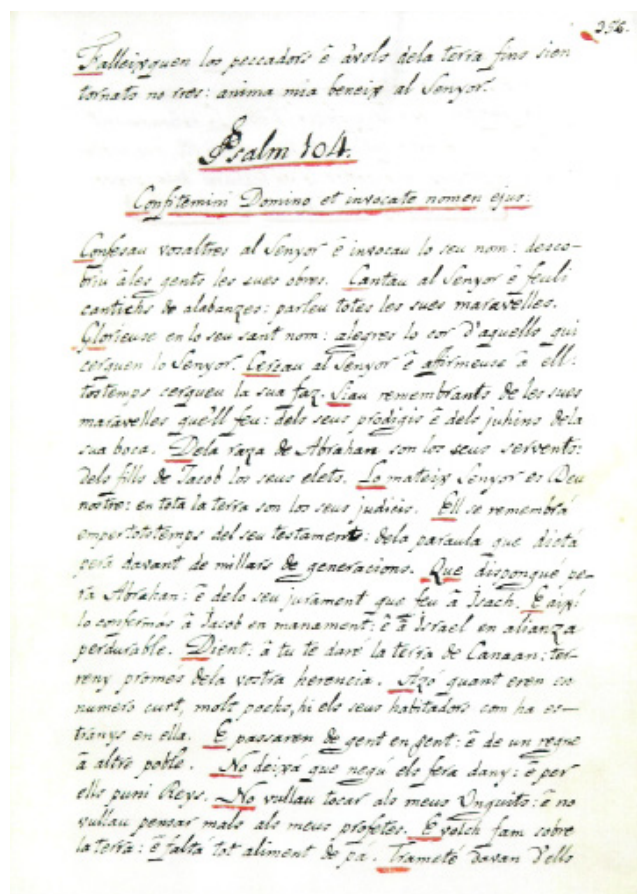 356.
Falleixquen los peccadors è àvols dela terra fins sien
tornats no rres: anima mia beneix al Senyor.
Psalm 104.
Confitemini Domino et invocate nomen ejus:
Confesau vosaltres al Senyor è invocau lo seu nom: desco-
briu àles gents les sues obres. Cantau al Senyor è feuli
cantichs de alabanzes: parleu totes les sues maravelles.
Glorieuse en lo seu sant nom: alegres lo cor d'aquells qui
cerquen lo Senyor. Cercau al Senyor è affirmeuse à ell:
tostemps cerqueu la sua faz. Siau remembrants de les sues
maravelles quell feu: dels seus prodigis è dels juhins dela
sua boca. Dela raza de Abrahan son los seus servents:
dels fills de Jacob los seus elets. Lo mateix Senyor es Deu
nostre: en tota la terra son los seus judicis. Ell se remembrá
empertotstemps del seu testament: dela paraula que dictá
perá davant de millars de generacions. Que dispongué pe-
ra Abrahan: è delo seu jurament que feu à Isach. E aixi
lo confermás à Jacob en manament: è à Israel en alianza
perdurable. Dient: à tu te daré la terra de Canaan: ter-
reny promes dela vostra herencia. Azó quant eren en
numero curt, molt pochs, hi els seus habitadors com ha es-
tranys en ella. E passaren de gent en gent: è de un regne
à altre poble. No deixá que negú els fera dany: è per
ells puni Reys. No vullau tocar als meus Unguits: è no
vullau pensar mals als meus profetes. E volch fam sobre
la terra: è faltá tot aliment de pá. Trameté davan d'ells